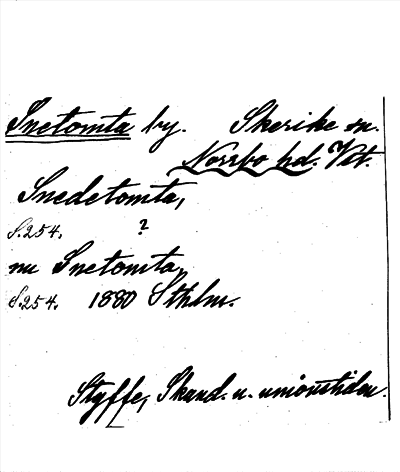 Snetomta by. Skerike sn.
Norrbo hd. Vst.
Snedetomta,
S.254. ?
nu Snetomta,
S.254. 1880 Sthlm.
Styffe, Skand. u. unionstiden.